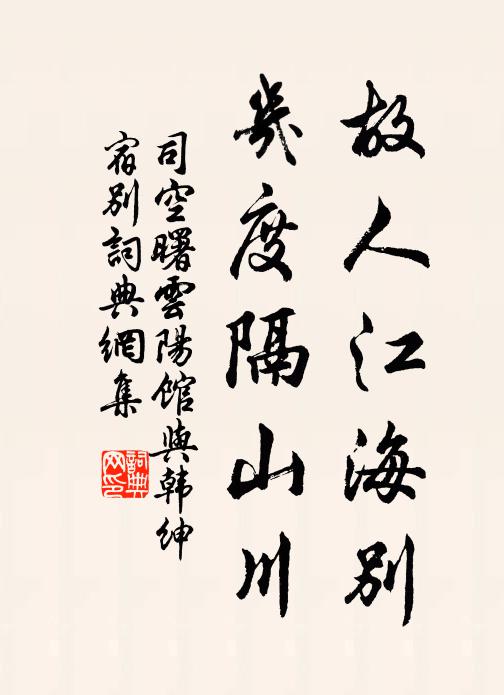 故人江海別
幾度隔山川
司空曙雲陽館與韓紳
宿別詞典網集
詞典
网印